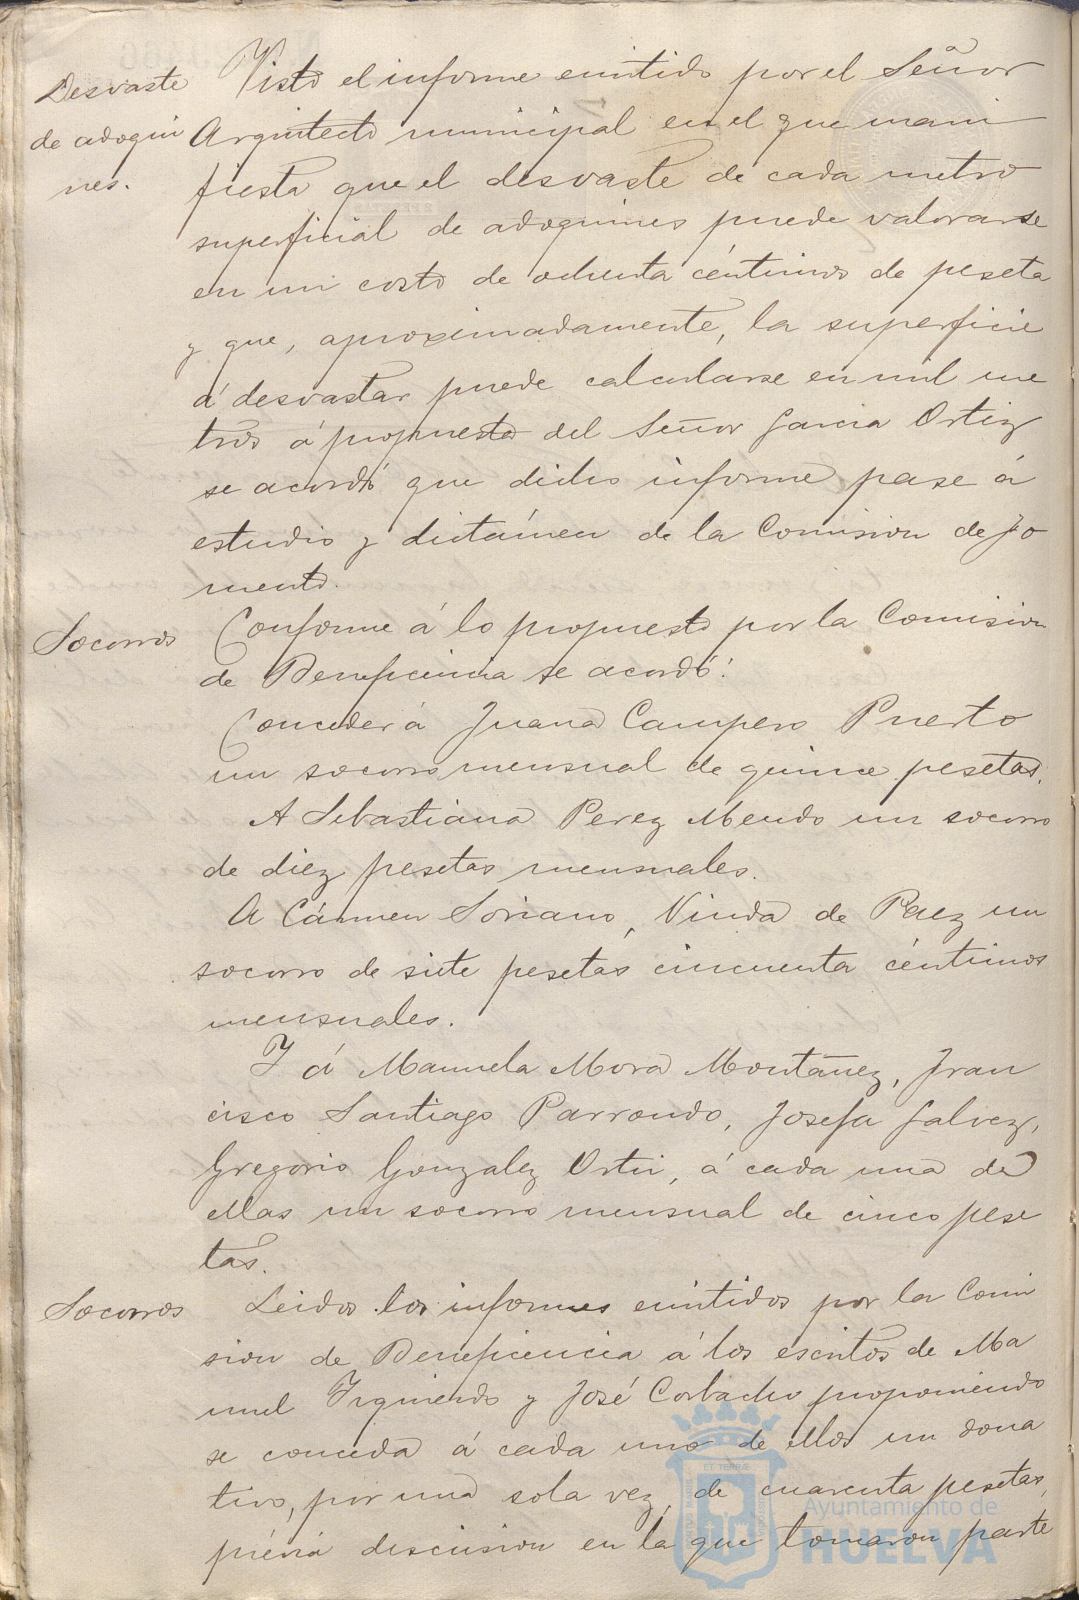 Desvaste
de adoquin
nes.
Visto el informe emitido por el Señor
Arquitecto municipal en el que mani
fiesta que el desvaste de cada metro
superficial de adoquines puede valorarse
en un costo de ochenta céntimos de peseta
y que, aproximadamente, la superficie
á desvastar puede calcularse en mil me
tros á propuesta del Señor Garcia Ortiz
se acordó que dicho informe pase á
estudio y dictámen de la Comision de Fo
mento.
Socorros
Conforme á lo propuesto por la Comision
de Beneficencia se acordó:
Conceder á Juana Campero Puerto
un socorro mensual de quince pesetas.
A Sebastiana Perez Mendo un socorro
de diez pesetas mensuales.
A Cármen Soriano, Viuda de Paez un
socorro de siete pesetas cincuenta céntimos
mensuales.
Y á Manuela Mora Montañez, Fran
cisco Santiago Parrondo, Josefa Galvez,
Gregorio Gonzalez Ortir, á cada una de
ellas un socorro mensual de cinco pese
tas.
Socorros
Leidos los informes emitidos por la Comi
sion de Beneficencia á los escritos de Ma
nuel Izquierdo y José Corbacho proponiendo
se conceda á cada uno de ellos un dona
tivo, por una sola vez, de cuarenta pesetas,
prévia discusion en la que tomaron parte
Ayuntamiento de
HUELVA